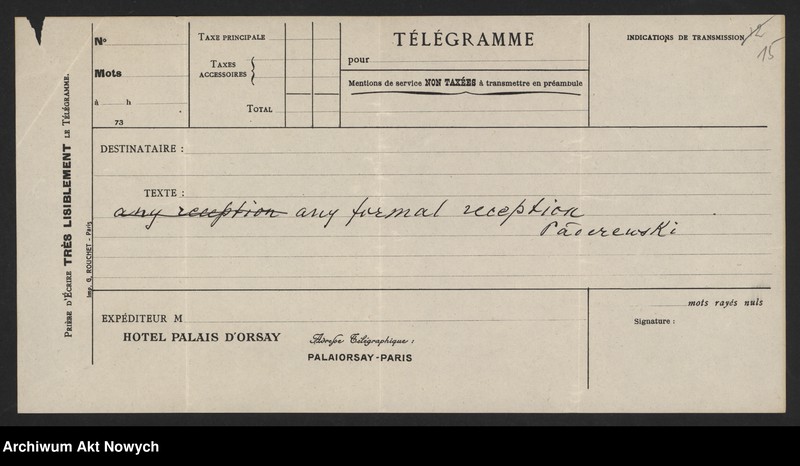 Nº
Mots
à h
73
TAXE PRINCIPALE
TAXES
ACCESSOIRES
TOTAL
TÉLÉGRAMME
pour
Mentions de service NON TAXÉES à transmettre en préambule
INDICATIONS DE TRANSMISSION
12
15
PRIÈRE D'ÉCRIRE TRÈS LISIBLEMENT LE TÉLÉGRAMME.
Imp. G. ROUCHET - Paris
DESTINATAIRE :
TEXTE :
any reception any formal reception
Paderewski
EXPÉDITEUR M
HOTEL PALAIS D'ORSAY
Adresse Télégraphique :
PALAIORSAY-PARIS
mots rayés nuls
Signature :
Archiwum Akt Nowych